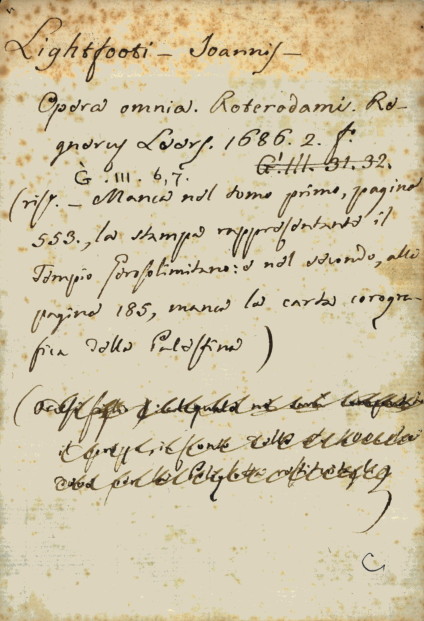 Lightfooti - Joannis -
Opera omnia. Roterodami. Re-
gnerus Leers. 1686. 2. fo.
G. III. 31. 32.
G. III. 6, 7.
(ris. - Manca nel tomo primo, pagina
553., la stampa rappresentante il
Tempio Gerosolimitano: e nel secondo, alla
pagina 185, manca la carta corogra-
fica della Palestina )
(
)
C